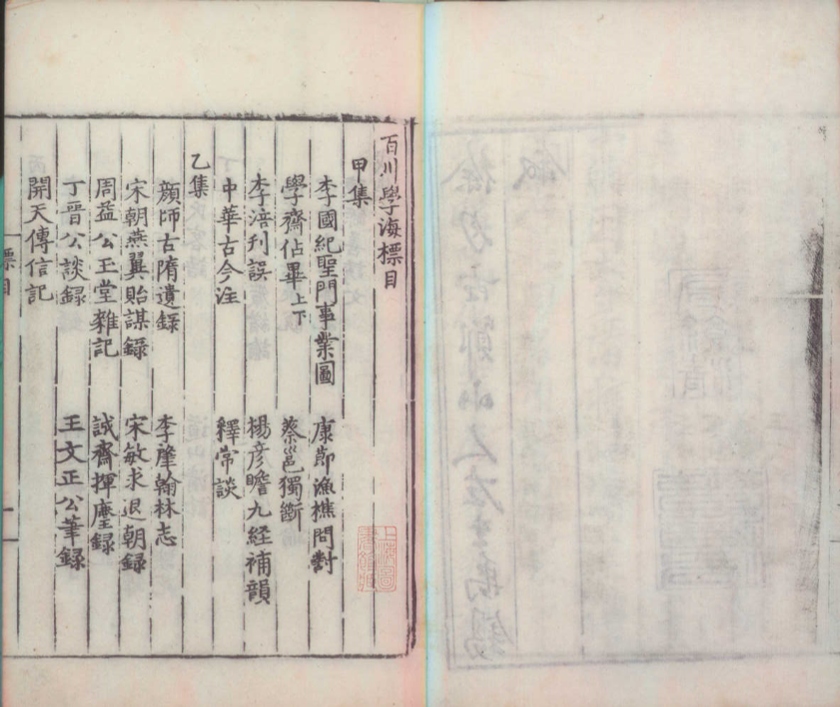 百川學海標目
甲集
李國紀聖門事業圖 康節漁樵問對
學齋佔畢上下 蔡邕獨斷
李涪刊誤 楊彦瞻九経補韻
中華古今注 釋常談
乙集
顔師古隋遺録 李肇翰林志
宋朝燕翼貽謀録 宋敏求退朝録
周益公玉堂雜記 誠齋揮麈録
丁晉公談録 王文正公筆録
開天傳信記
標目
一